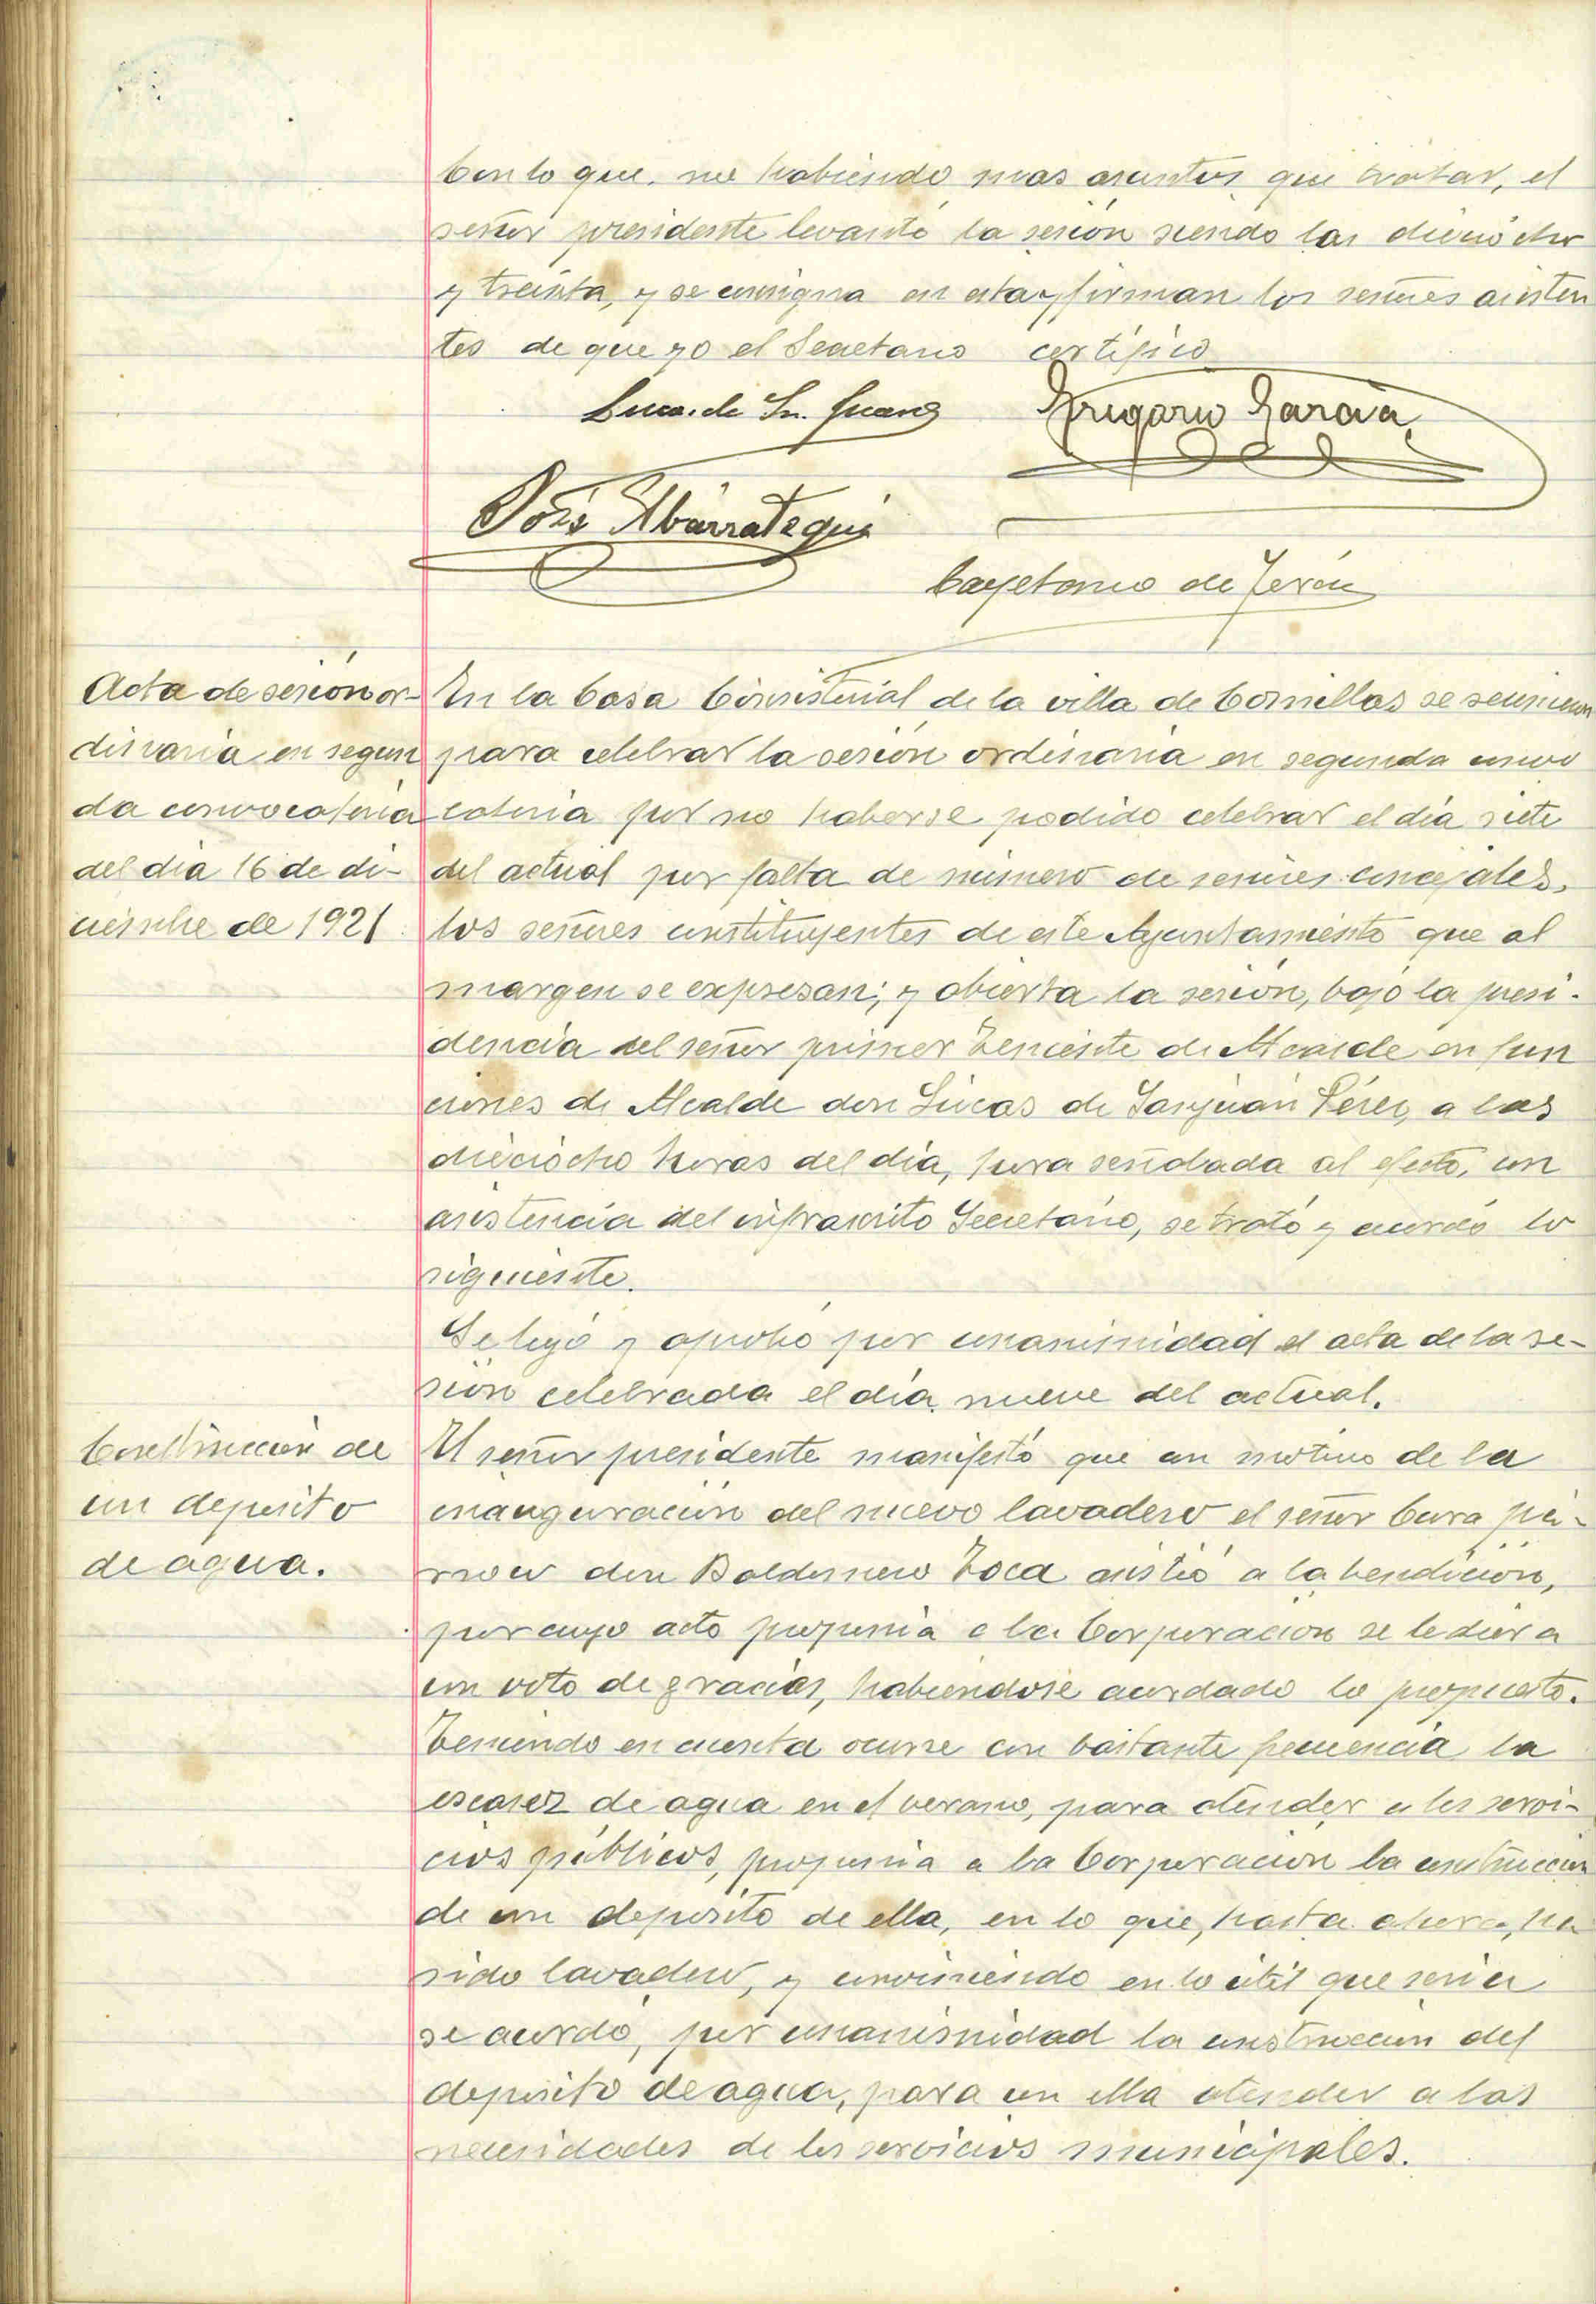 Con lo que, no habiendo mas asuntos que tratar, el
señor presidente levantó la sesión siendo las dieciocho
y treinta, y se consigna en acta y firman los señores asisten
tes de que yo el Secretario certifico
Lucas de Sn. Juan
Gregorio Garcia
Abarrategui
Cayetano de Terán
Acta de sesión or-
dinaria en segun
da convocatoria
del dia 16 de di-
ciembre de 1921
En la Casa Consistorial de la villa de Comillas se reunieron
para celebrar la sesión ordinaria en segunda convo
catoria por no haberse podido celebrar el día siete
del actual por falta de número de señores concejales,
los señores constituyentes de este Ayuntamiento que al
margen se expresan; y abierta la sesión, bajo la presi-
dencia del señor primer Teniente de Alcalde en fun
ciones de Alcalde don Lucas de Sanjuan Pérez, a las
dieciocho horas del día, hora señalada al efecto, con
asistencia del infrascrito Secretario, se trató y acordó lo
siguiente.
Se leyó y aprobó por unanimidad el acta de la se-
sión celebrada el día nueve del actual.
Construcción de
un deposito
de agua.
El señor presidente manifestó que con motivo de la
inauguración del nuevo lavadero el señor Cura pá-
rroco don Baldomero Toca asistió a la bendición,
por cuyo acto proponia a la Corporación se le diera
un voto de gracias, habiendose acordado lo propuesto.
Teniendo en cuenta ocurre con bastante frecuencia la
escasez de agua en el verano, para atender a los servi-
cios públicos, proponia a la Corporación la construcción
de un deposito de ella, en lo que, hasta ahora, ha
sido lavadero, y conviniendo en lo útil que seria
se acordó, por unanimidad la construcción del
deposito de agua, para con ella atender a las
necesidades de los servicios municipales.